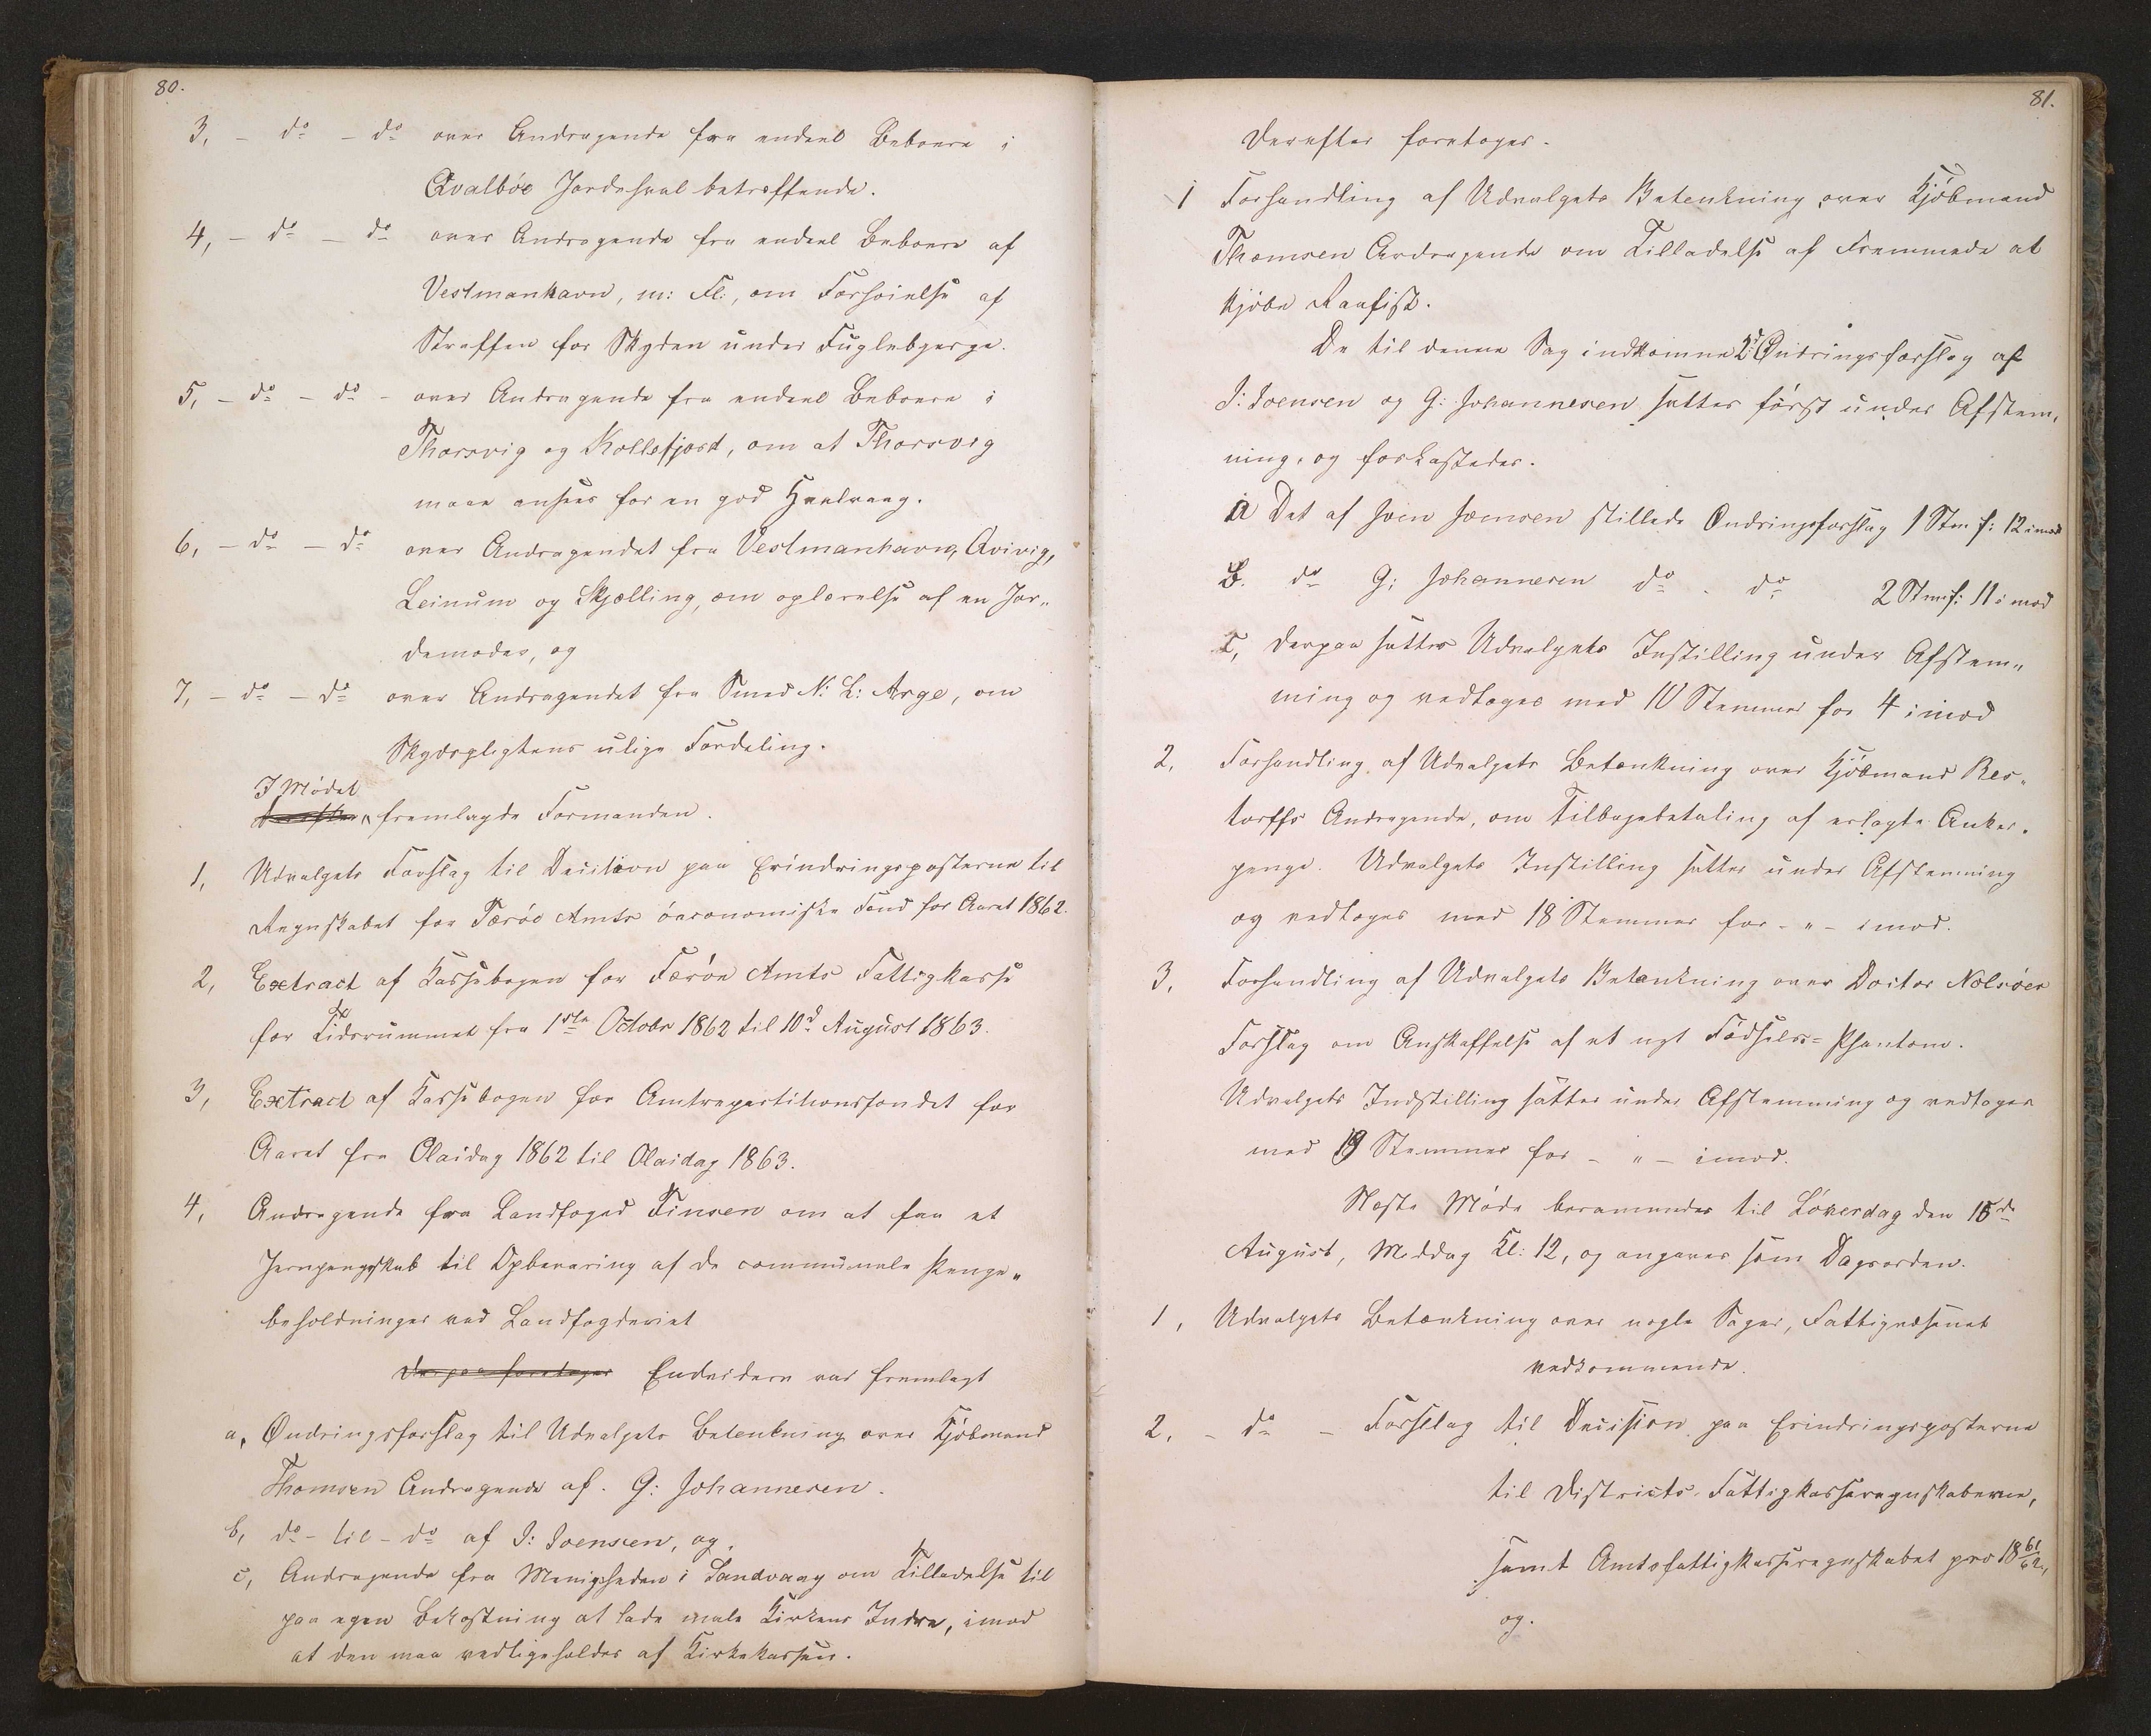 80.
3, - do - do over Andragende fra endeel Beboere i
Qvalböe Jordehval betræffende.
4, - do - do over Andragende fra endeel Beboere af
Vestmanhavn, m: Fl:, om Forhøielse af
Straffen for Skyden under Fuglebjerge.
5, - do - do - over Andragende fra endeel Beboere i
Thorsvig og Kollefjord, om at Thorsvig
maae ansees for en god Hvalvaag.
6, - do - do over Andragendet fra Vestmanhavn, Qvivig,
Leinum og Skjælling, om oplærelse af en Jor„
demoder, og
7, - do - do over Andragendet fra Smed N: L: Arge, om
Skydspligtens ulige Fordeling.
I Mødet
Derefter fremlagde Formanden.
1, Udvalgets Forslag til Decision paa Erindringsposterne til
Regnskabet for Færöe Amts öeconomiske Fond for Aaret 1862.
2, Extract af Kassebogen for Færöe Amts Fattigkasse
for Tidsrummet fra 1ste Octobr 1862 til 10d August 1863.
3, Extract af Kassebogen for Amtrepartitionsfondet for
Aaret fra Olaidag 1862 til Olaidag 1863.
4, Andragende fra Landfoged Finsen om at faa et
Jernpengeskab til Opbevaring af de communale Penge„
beholdninger ved Landfogderiet
Derpaa foretoges Endvidere var fremlagt
a, Öndringsforslag til Udvalgets Betenkning over Kjöbmand
Thomsen Andragende af. G: Johannesen.
b, do - til - do af J: Joensen, og.
c, Andragende fra Menigheden i Sandvaag om Tilladelse til
paa egen Bekostning at lade male Kirkens Indre, imod
at den maa vedligeholdes af Kirkekassen.
81.
Derefter foretoges.
1 Forhandling af Udvalgets Betenkning over Kjöbmand
Thomsen Andragende om Tilladelse af Fremmede at
kjöbe Raafisk.
De til denne Sag indkomne 2de Öndringsforslag af
J: Joensen og G: Johannesen sattes först under Afstem„
ning, og forkastedes.
a Det af Joen Joensen stillede Öndringsforslag 1 Stm f: 12 imod
B. do G: Johannesen do . do 2 Stm f: 11 i mod
c, Derpaa sattes Udvalgets Instilling under Afstem„
ning og vedtoges med 10 Stemmer for 4 imod
2, Forhandling af Udvalgets Betænkning over Kjöbmand Res„
torffs Andragende, om Tilbagebetaling af erlagte Anker„
penge. Udvalgets Instilling sattes under Afstemning
og vedtoges med 18 Stemmer for - „ - imod.
3, Forhandling af Udvalgets Betænkning over Doctor Nolsöes
Forslag om Anskaffelse af et nyt Födsels=Phantom.
Udvalgets Indstilling sattes under Afstemning og vedtoges
med 19 Stemmer for - „ - imod.
Næste Möde berammedes til Löverdag den 15de
August, Middag Kl: 12, og angaves som Dagsorden.
1, Udvalgets Betænkning over nogle Sager, Fattigvæsenet
vedkommende.
2, - do - Forslag til Decision paa Erindringsposterne
til Districts Fattigkasseregnskaberne,
samt Amtsfattigkasseregnskabet pro 1861/62,
og.